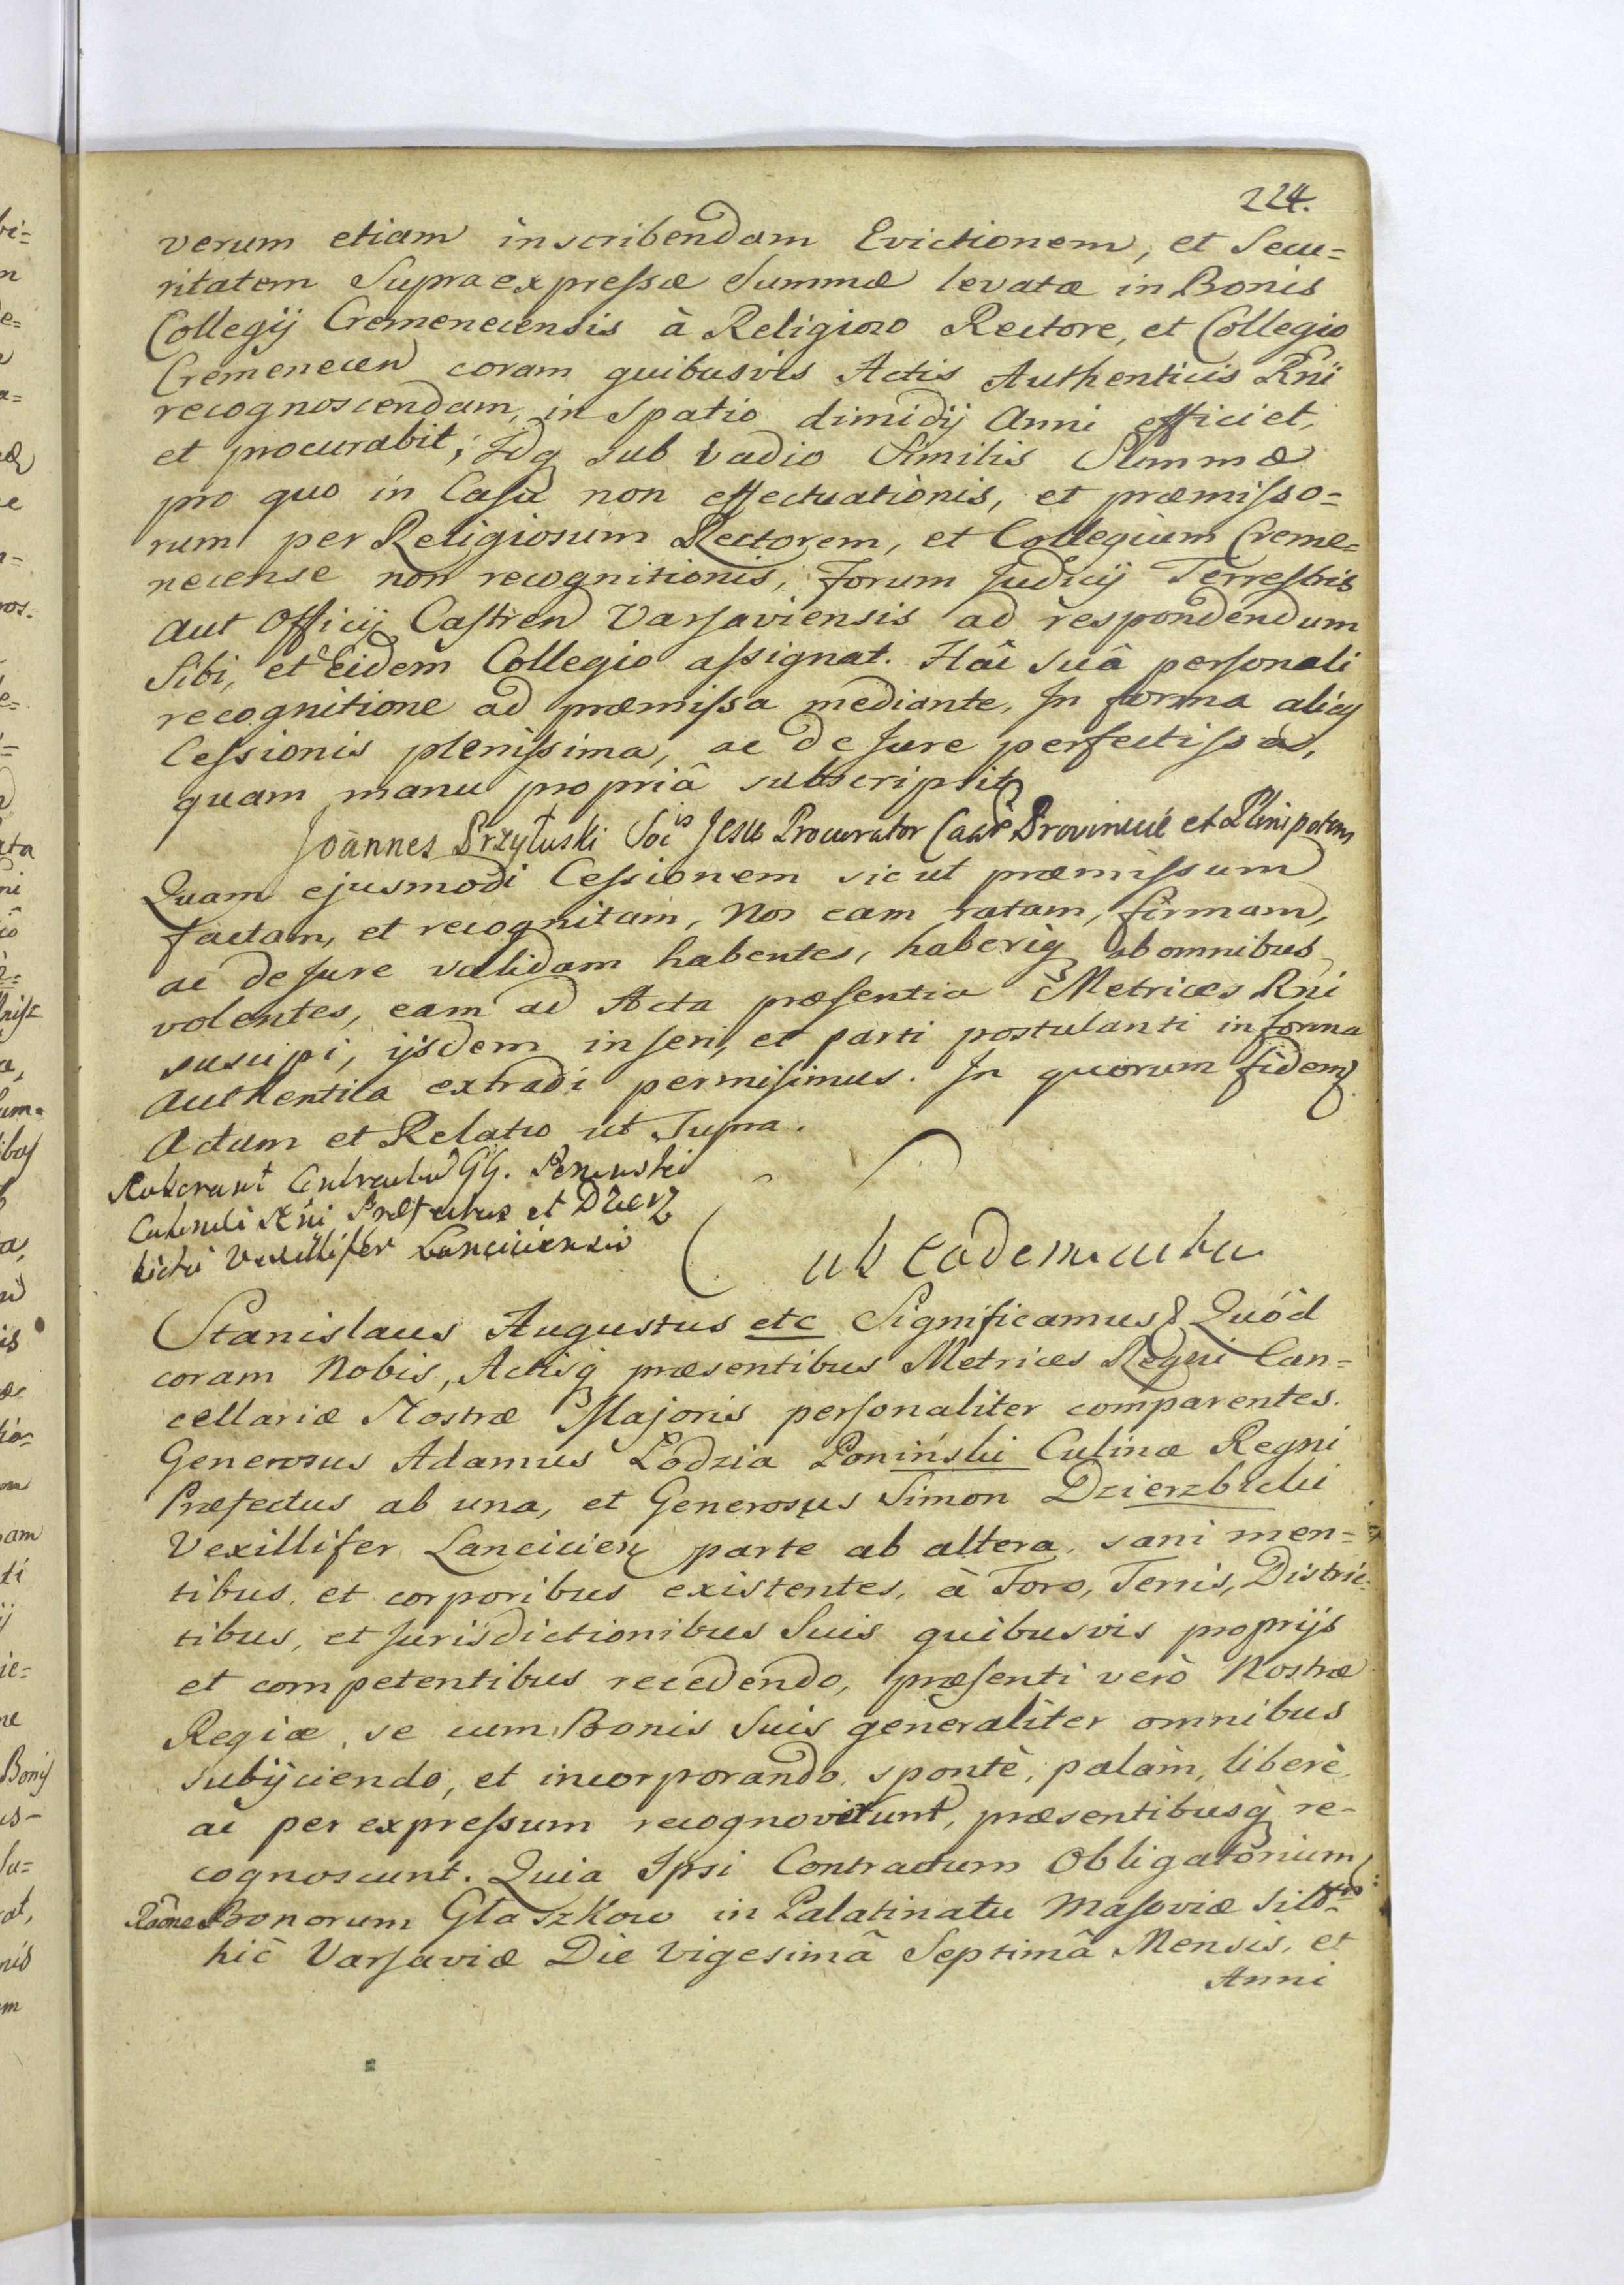 224.
verum etiam inscribendam Evictionem, et Secu=
ritatem Supraexpressæ Summæ levatæ in Bonis
Collegij Cremenecensis à Religioso Rectore, et Collegio
Cremenecen coram quibusvis Actis Authenticis Rni
recognoscendam, in Spatio dimidij Anni efficiet,
et procurabit; Idq sub Vadio Similis Summæ
pro quo in Casu non effectuationis, et præmisso=
rum per Religiosum Rectorem, et Collegium Creme=
necense non recognitionis, Forum Judicij Terrestris
aut Officij Castren Varsaviensis ad respondendum
Sibi, et Eidem Collegio assignat. Hâc Suâ personali
recognitione ad præmissa mediante, In forma alicuj
Cessionis plenissima, ac de Jure perfectissa,
quam manu propriâ subscripsit
Joannes Przyłuski Socis Jesu Procurator Caae Provinciæ et Plenipotens
Quam ejusmodi Cessionem sicut præmissum
factam, et recognitam, Nos eam ratam, firmam,
ac de Jure validam habentes, haberiq ab omnibus
volentes, eam ad Acta præsentia Metrices Rni
suscipi, ijsdem inseri, et parti postulanti in forma
Authentica extradi permisimus. In quorum fidem
Actum et Relatio ut Supra.
Roborant Contractum GG. Poninski
Culinæ Rni Præfectus et Dzierz
bicki Vexillifer Lanciciensis
ab eadem acta
Stanislaus Augustus etc Significamus Quód
coram Nobis, Actisq præsentibus Metrices Regni Can=
cellariæ Nostræ Majoris personaliter comparentes.
Generosus Adamus Łodzia Poniński Culinæ Regni
Præfectus ab una, et Generosus Simon Dzierzbicki
Vexillifer Lancicien parte ab altera, sani men=
tibus, et corporibus existentes, à Foro, Terris, Distric=
tibus, et Jurisdictionibus Suis quibusvis proprijs
et competentibus recedendo, præsenti verò Nostræ
Regiæ, se cum Bonis Suis generaliter omnibus
subijciendo, et incorporando, spontè, palàm, liberè,
ac per expressum recognoverunt, præsentibusq re-
cognoscunt. Quia Ipsi Contractum Obligatorium
Raône Bonorum Głaszkow in Palatinatu Masoviæ
hîc Varsaviæ Die Vigesimâ Septimâ Mensis, et
Anni